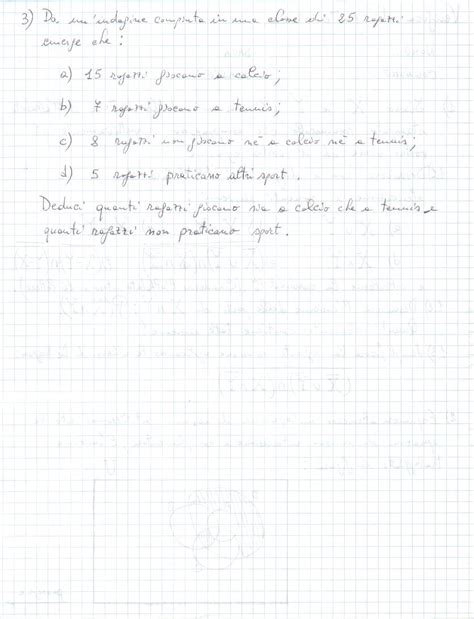 3) Da un'indagine compiuta in una classe di 25 ragazzi
emerge che :
a) 15 ragazzi giocano a calcio;
b) 7 ragazzi giocano a tennis;
c) 8 ragazzi non giocano né a calcio né a tennis;
d) 5 ragazzi praticano altri sport.
Deduci quanti ragazzi giocano sia a calcio che a tennis e
quanti ragazzi non praticano sport.